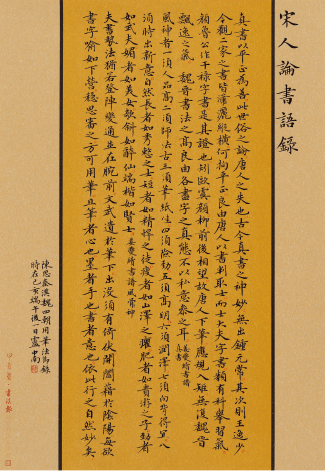 宋人論書語録
真書以平正為善此世俗之論唐人之失也古今真書之神妙無出鍾元常其次則王逸少
今觀二家之書皆瀟灑縱横何拘平正良由唐人以書判取士而士大夫字書類有科舉習氣
顏魯公作干禄字書是其證也矧歐虞顏柳前後相望故唐人下筆應規入矩無復魏晉
飄逸之氣 魏晉書法之高良由各盡字之真態不以私意参之耳 姜夔續書譜真書
風神者一須人品高二須師法古三須筆紙佳四須險勁五須高明六須潤澤七須向背得宜八
須時出新意自然長者如秀整之士短者如精悍之徒瘦者如山澤之癯肥者如貴游之子勁者
如武夫媚者如美女欹斜如醉仙端楷如賢士 姜夔續書譜風神
夫書
書字喻如下營穩思審之方可用筆且筆者心也墨者手也書者意也依此行之自然妙矣
陳思秦漢魏四朝用筆法節錄
時在己亥端午後一日